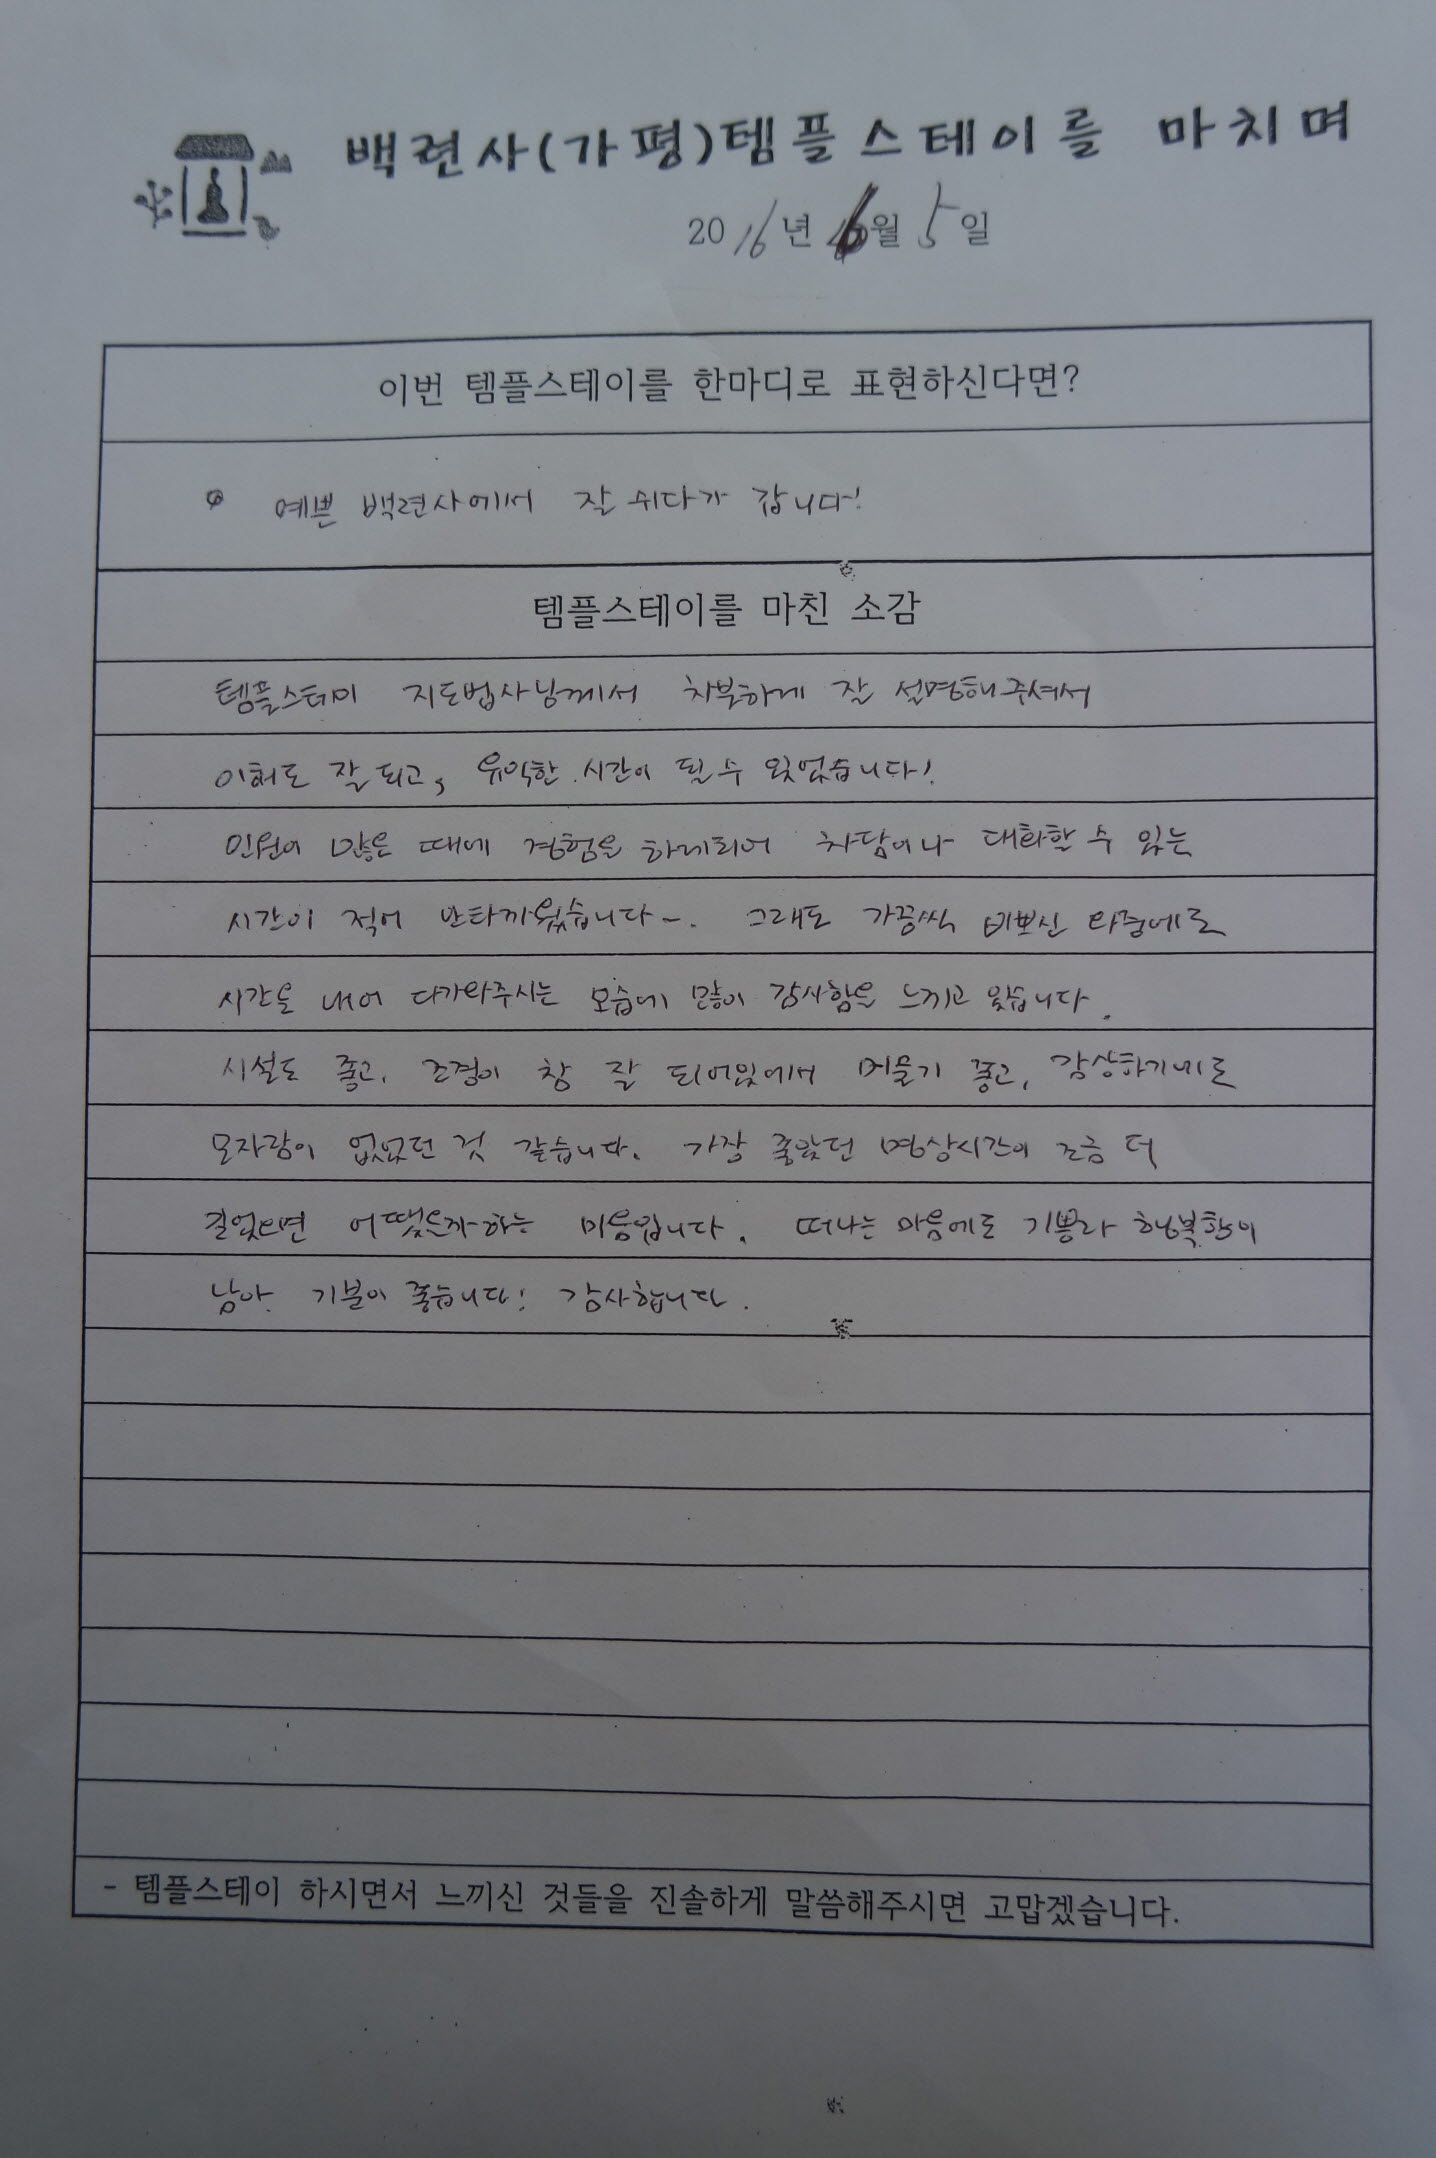 백련사(가평)템플스테이를 마치며
2016년 6월 5일
이번 템플스테이를 한마디로 표현하신다면?
예쁜 백련사에서 잘 쉬다가 갑니다!
템플스테이를 마친 소감
템플스테이 지도법사님께서 차분하게 잘 설명해주셔서
이해도 잘 되고, 유익한 시간이 될 수 있었습니다!
인원이 많은 때에 경험을 하게되어 차담이나 대화할 수 있는
시간이 적어 안타까웠습니다~. 그래도 가끔씩 바쁘신 와중에도
시간을 내어 다가와주시는 모습에 많이 감사함을 느끼고 있습니다.
시설도 좋고, 조경이 참 잘 되어있어서 머물기 좋고, 감상하기에도
모자람이 없었던 것 같습니다. 가장 좋았던 명상시간이 조금 더
길었으면 어땠을까하는 마음입니다. 떠나는 마음에도 기쁨과 행복함이
남아 기분이 좋습니다! 감사합니다.
- 템플스테이 하시면서 느끼신 것들을 진솔하게 말씀해주시면 고맙겠습니다.